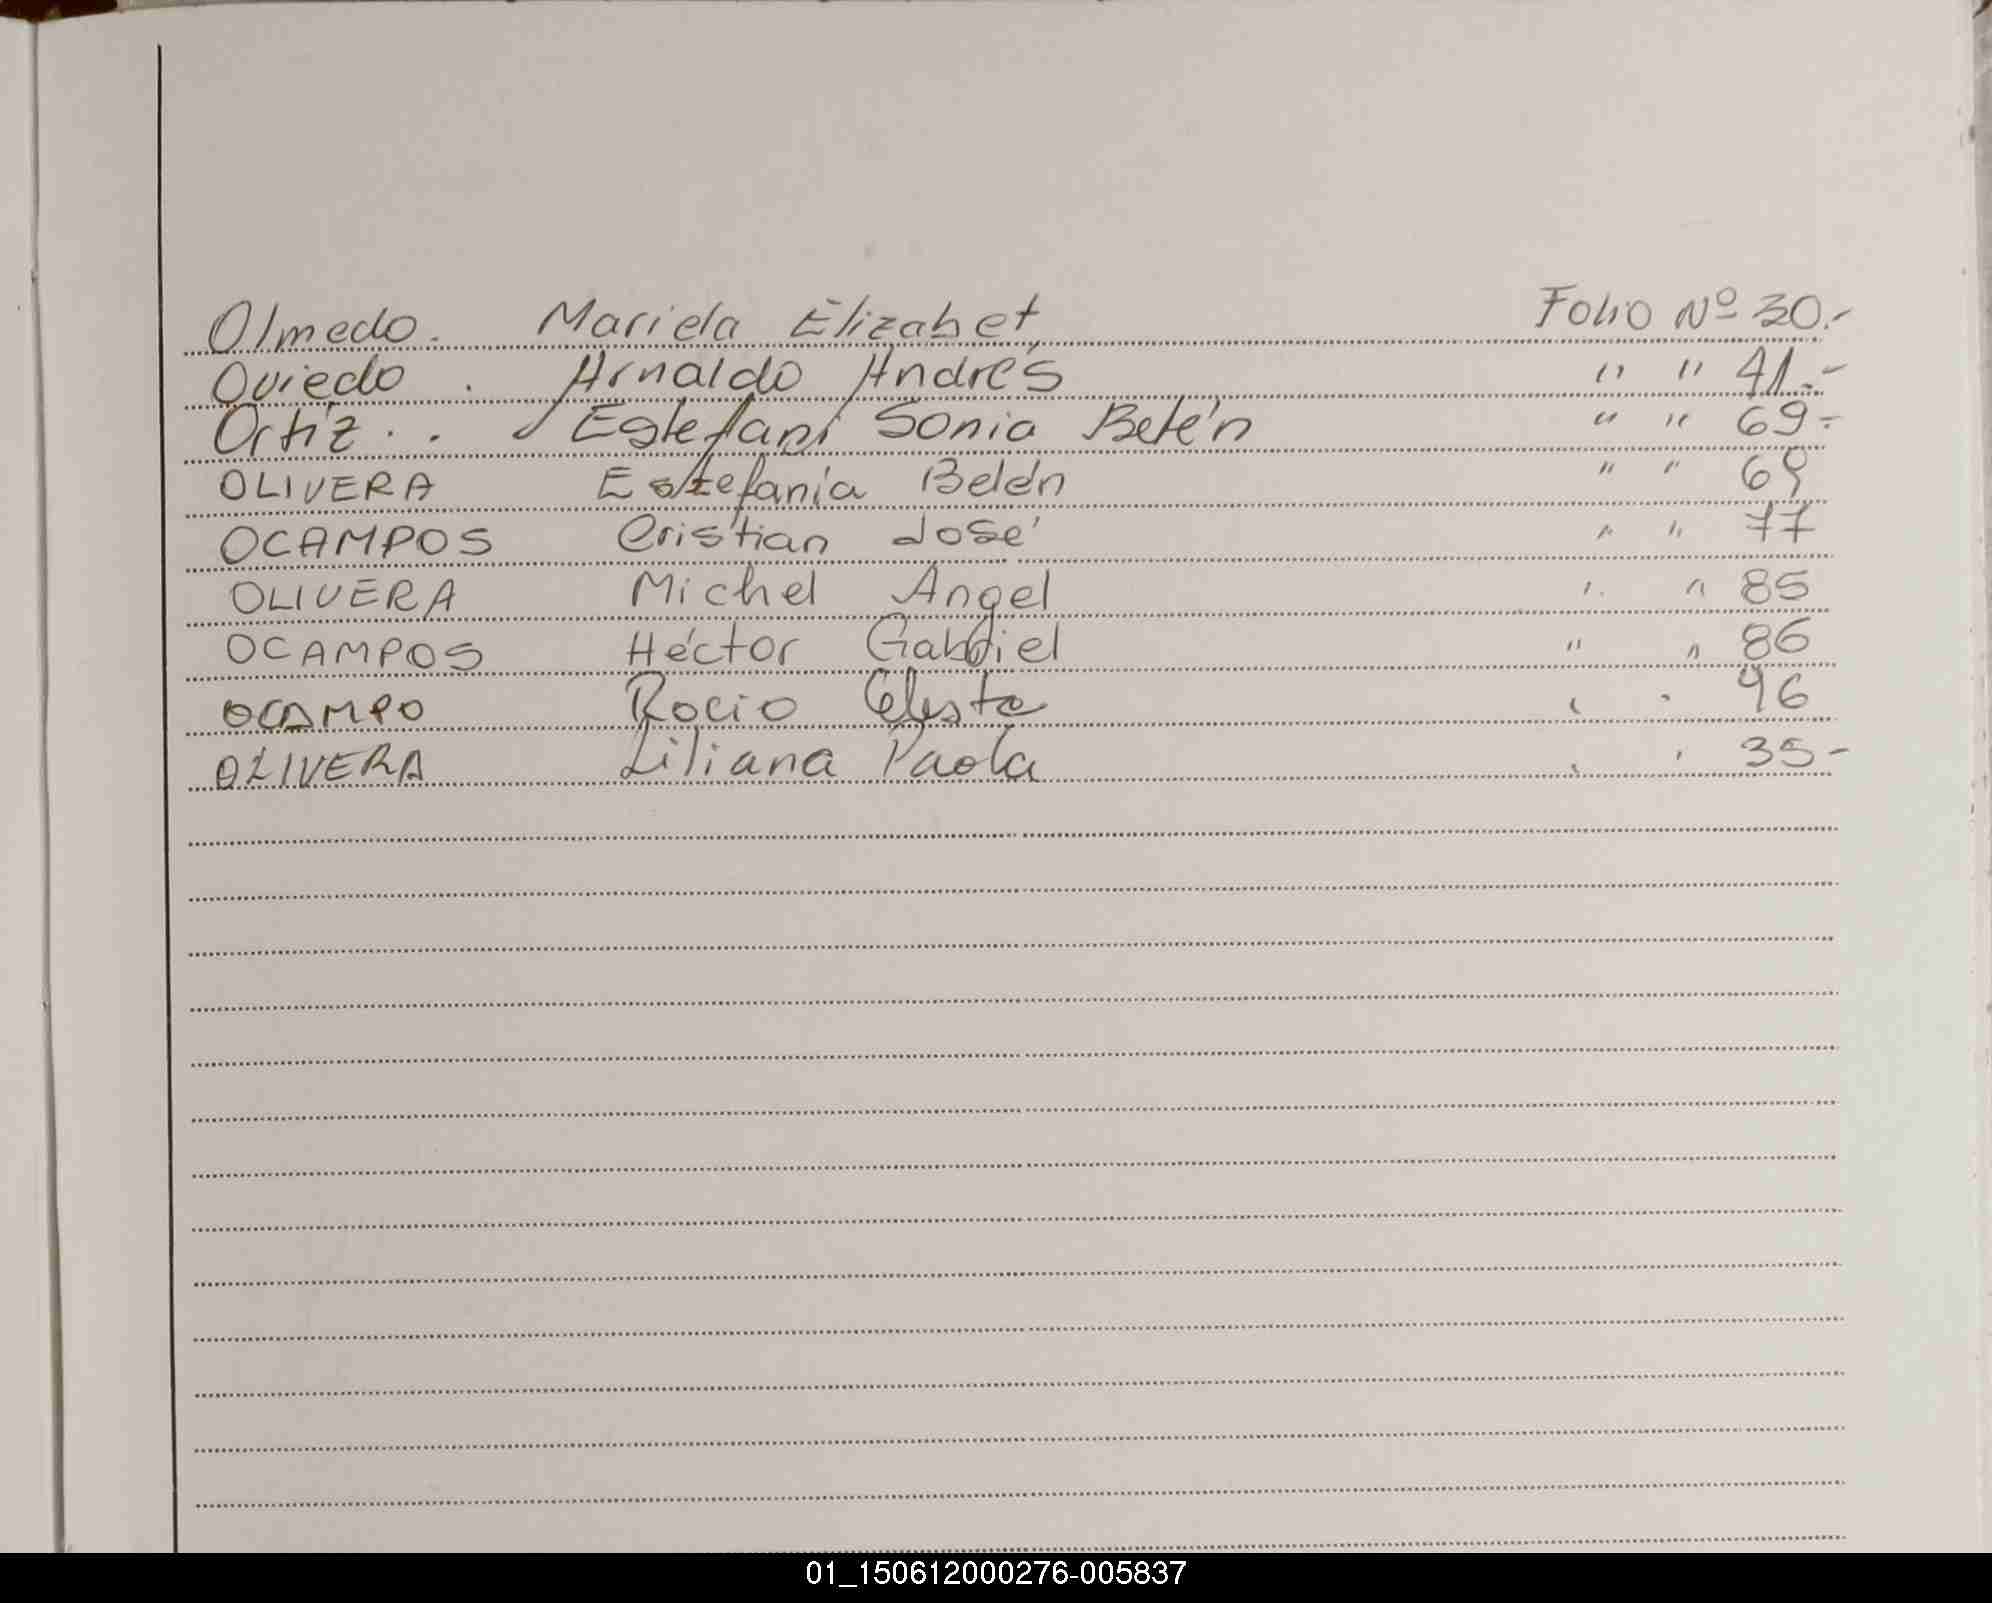 Olmedo. Mariela Elizabet Folio Nº 30.-
Oviedo . Arnaldo Andrés " " 41.-
Ortíz . . Estefani Sonia Belén " " 69-
OLIVERA Estefanía Belén " " 69
OCAMPOS Cristian José " " 77
OLIVERA Michel Angel " " 85
OCAMPOS Héctor Gabriel " " 86
OCAMPO Rocio Celeste " " 96
OLIVERA Liliana Paola " " 35-
01_150612000276-005837